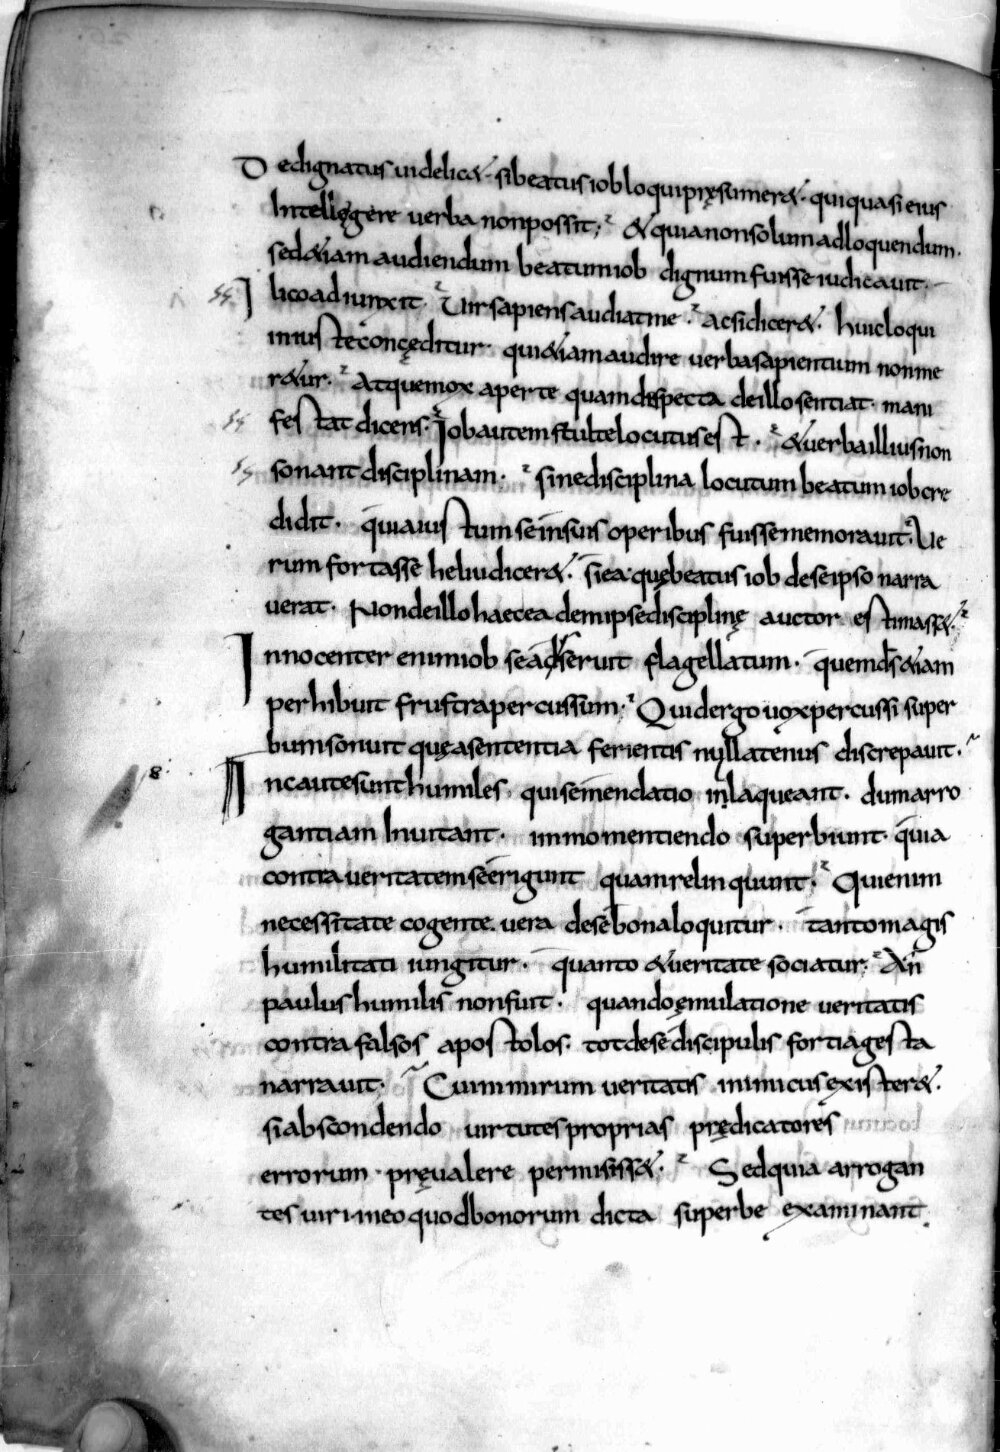 Dedignatus uidelic& sibeatus iob loqui pręsumer& qui quasi eius
Intellegere uerba non possit; & quia non solum ad loquendum
sed &iam audiendum beatum iob dignum fuisse iudicauit.
Ilico adiunxit. Uir sapiens audiat me. acsi dicer&. huic loqui
iniuste conceditur. qui &iam audire uerba sapientum non me
r&ur. Atque mox aperte quam dispecta de illo sentiat mani
festat dicens. Iob autem stulte locutus est. & uerba illius non
sonant disciplinam. sine disciplina locutum beatum iob cre
didit. quia iustum se in suis operibus fuisse memorauit. Ue
rum fortasse heliu dicer&. si ea quę beatus iob de se ipso narra
uerat. Non de illo haec eadem ipse disciplinę auctor estimass&.
Innocenter enim iob se adseruit flagellatum. quem d̄s &iam
perhibuit frustra percussum. Quid ergo uox percussi super
bum sonuit quę a sententia ferientis nullatenus discrepauit.
8 Incaute sunt humiles. qui se mendatio inlaqueant. dum arro
gantiam Inuitant. immo mentiendo superbiunt. quia
contra ueritatem se erigunt quam relinquunt. Qui enim
necessitate cogente. uera de se bona loquitur. tanto magis
humilitati iungitur. quanto & ueritate sociatur. An
paulus humilis non fuit. quando ęmulatione ueritatis
contra falsos apostolos. tot de se discipulis fortia gesta
narrauit. Cui nimirum ueritatis inimicus exister&.
si abscondendo uirtutes proprias prędicatores
errorum pręualere permisiss&. Sed quia arrogan
tes uiri meo quod bonorum dicta superbe examinant